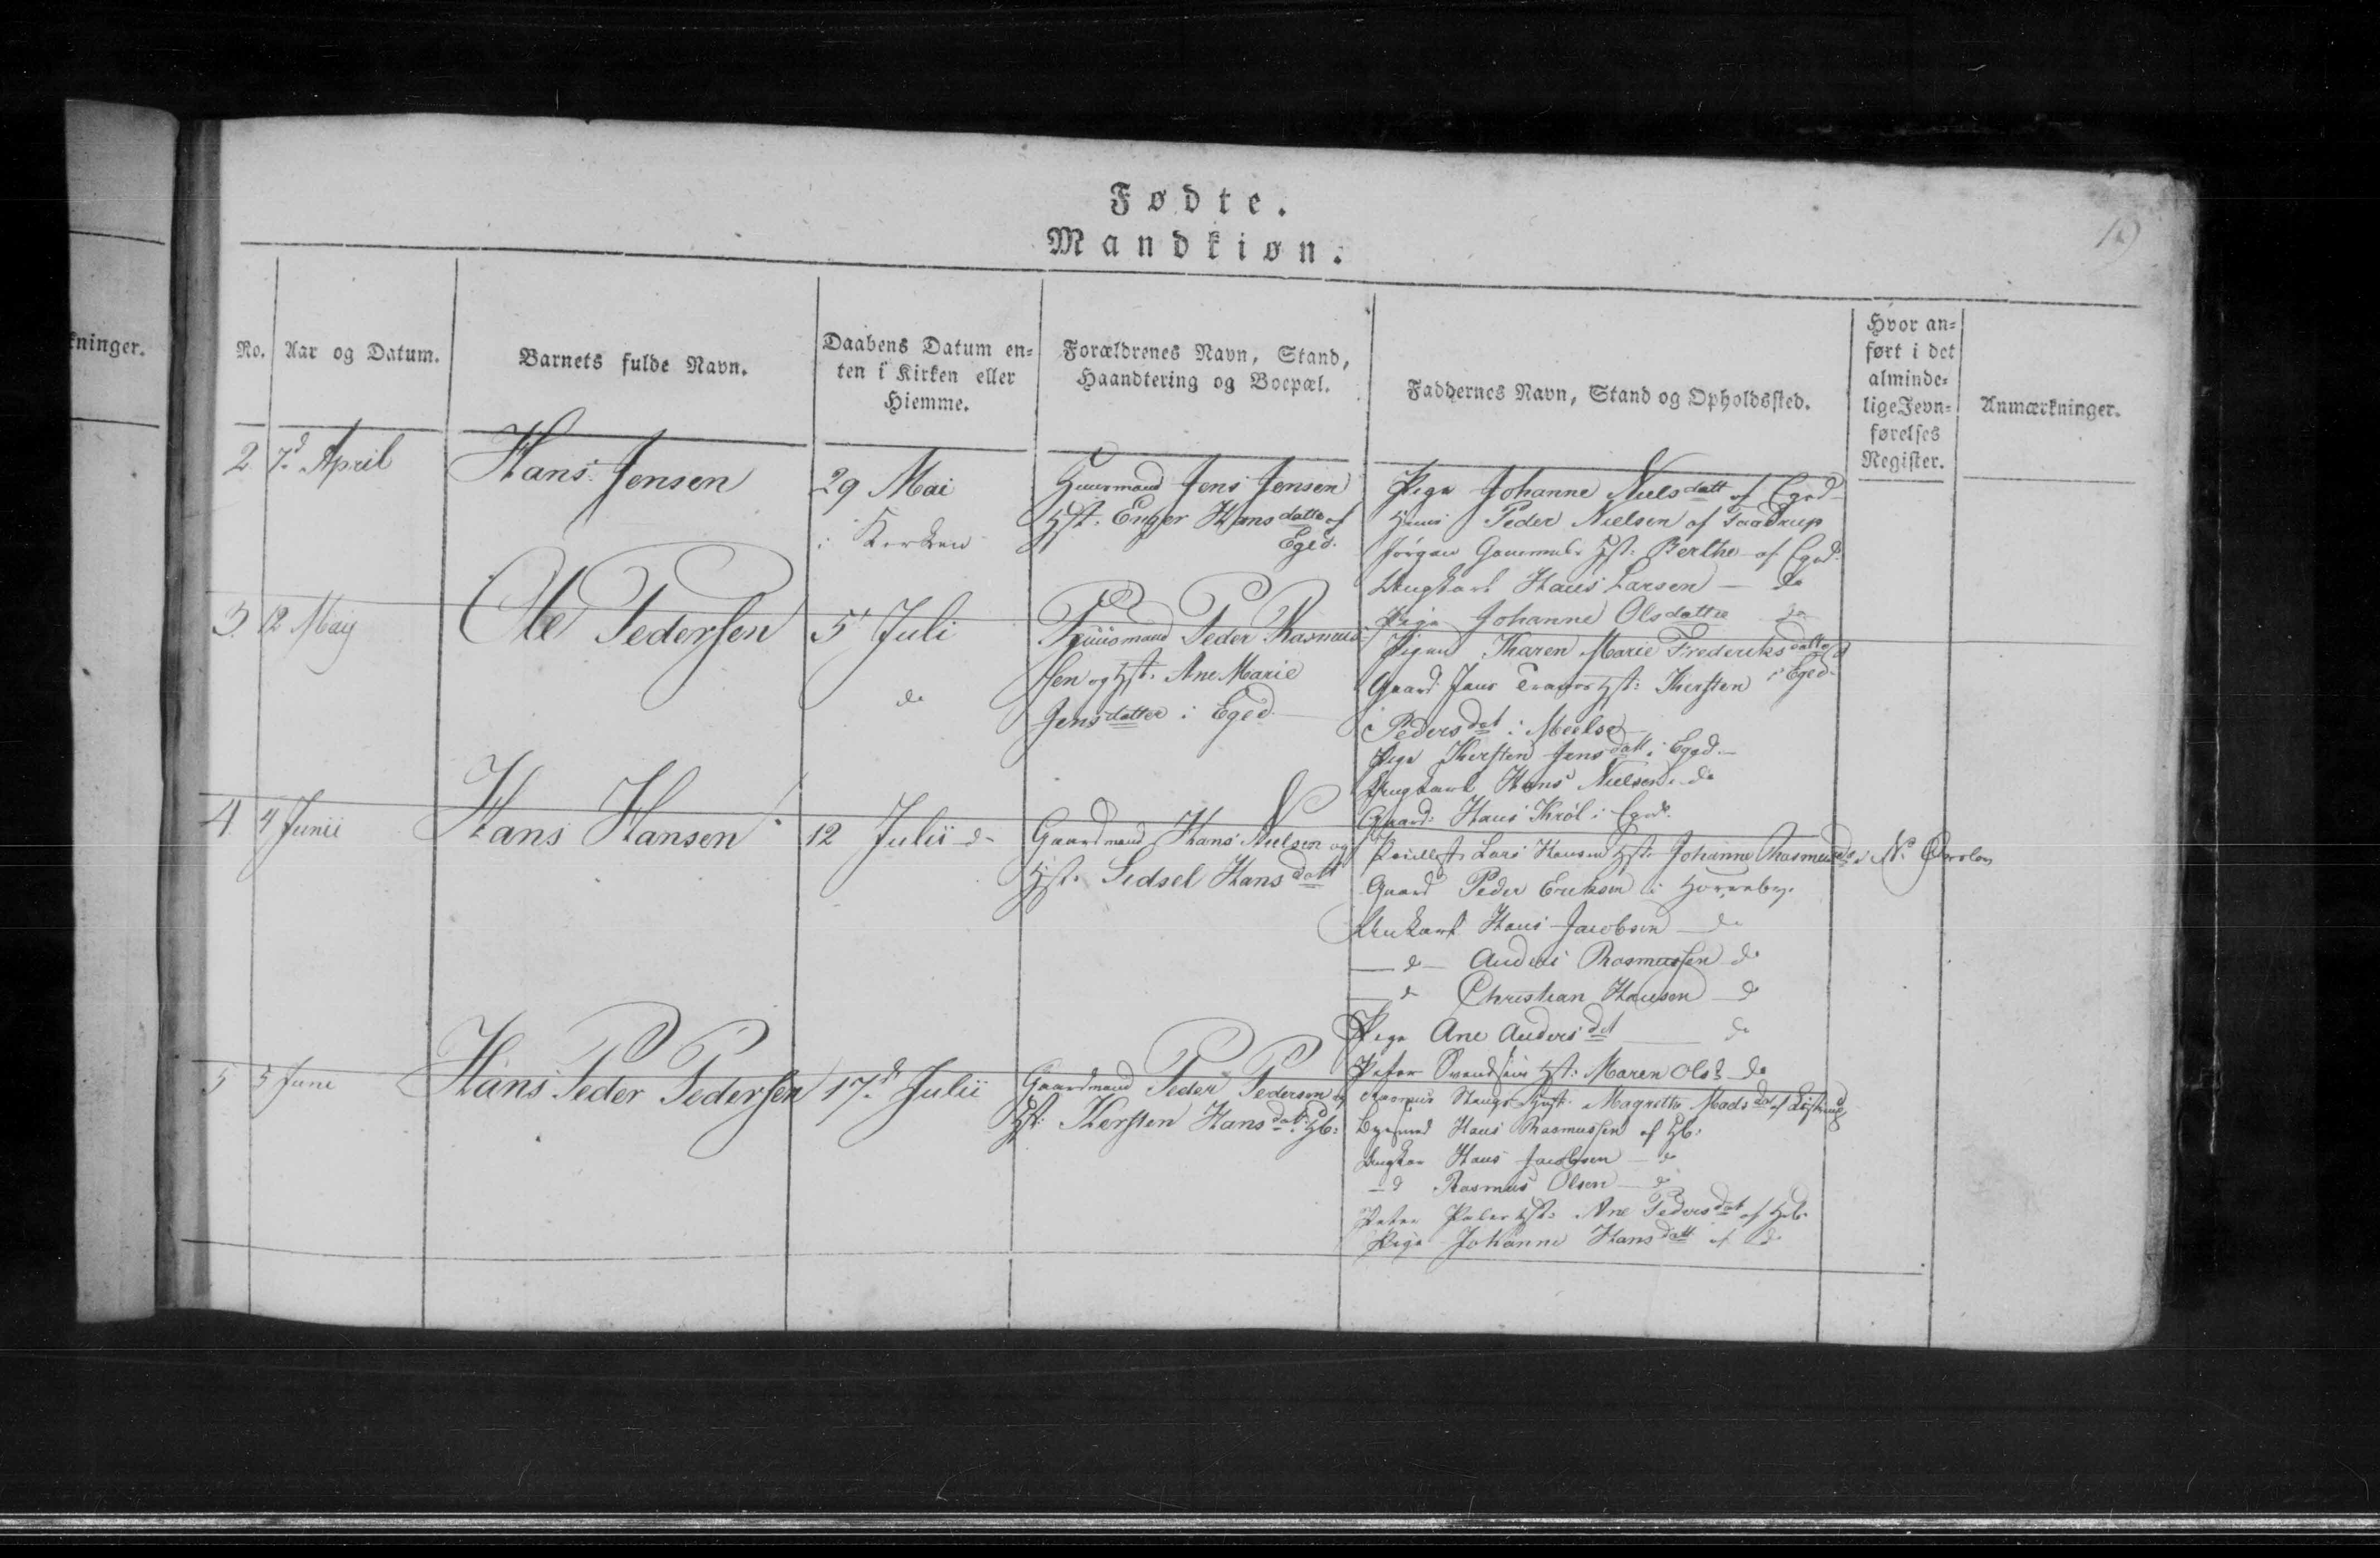 Fødte.
Mandkiøn.
19
kninger.
No.
Aar og Datum.
Barnets fulde Navn.
Daabens Datum en-
ten i Kirken eller
Hiemme.
Forældrenes Navn, Stand,
Haandtering og Boepæl.
Faddernes Navn, Stand og Opholdssted.
Hvor an-
ført i det
alminde-
lige Jevn-
førelses
Register.
Anmærkninger.
2
7d April
Hans Jensen
29 Mai
i Kirken
Huusmand Jens Jensen
Hst. Enger Hansdatte af
Eged.
Pige Johanne Nielsdatt af Eged
Huus Peder Nielsen af Taadrup
Jørgen Hst: Berthe af Eged
Ungkarl Hans Larsen — do
Pige Johanne Olsdatter do
3.
12 Maij
Ole Pedersen
5 Juli
do
Huusmand Peder Rasmus-
sen og Hst. Ane Marie
Jensdatter i Eged
Pigen Karen Marie Frederiksdatter
i Eged
Gaard Jens Hst: Kersten
Pedersdat i Meelse
Pige Kersten Jensdatt i Eged
Ungkarl Hans Nielsen do
Gaard: Hans Krøl i Eged
4.
4 Junii
Hans Hansen
12 Julii do
Gaardmand Hans Nielsen og
Hst. Sidsel Hansdatt
Lars Hansen Hst: Johanne Rasmusd i N.
Gaard Peder Eriksen i Horreby.
Unkarl Hans Jacobsen — do
— do — Anders Rasmussen do
— do Christian Hansen — do
Pige Ane Andersdat — do
Peter Svendsens Hst: Maren Olsd do
5
5 Juni
Hans Peder Pedersen
17d Julii
Gaardmand Peder Pedersen og
Hst: Kersten Hansdatt: Hb:
Rasmus Stangs Hust. Magrethe Madsdat af
Hans Rasmussen af Hb:
Ungkar Hans Jacobsen — do
— do Rasmus Olsen — do
Peter Hst: Ane Pedersdat af Hb.
Pige Johanne Hansdatt af do